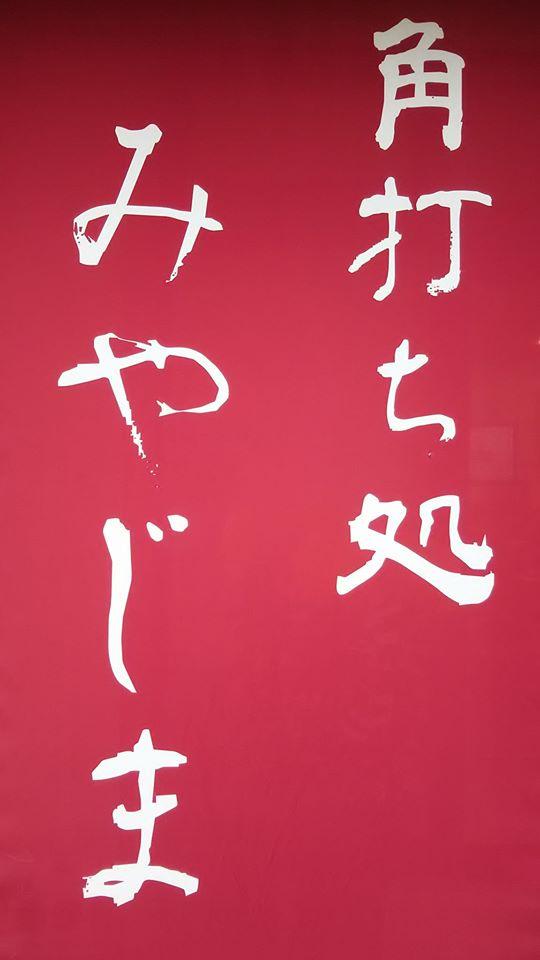 角打ち処
みやじま